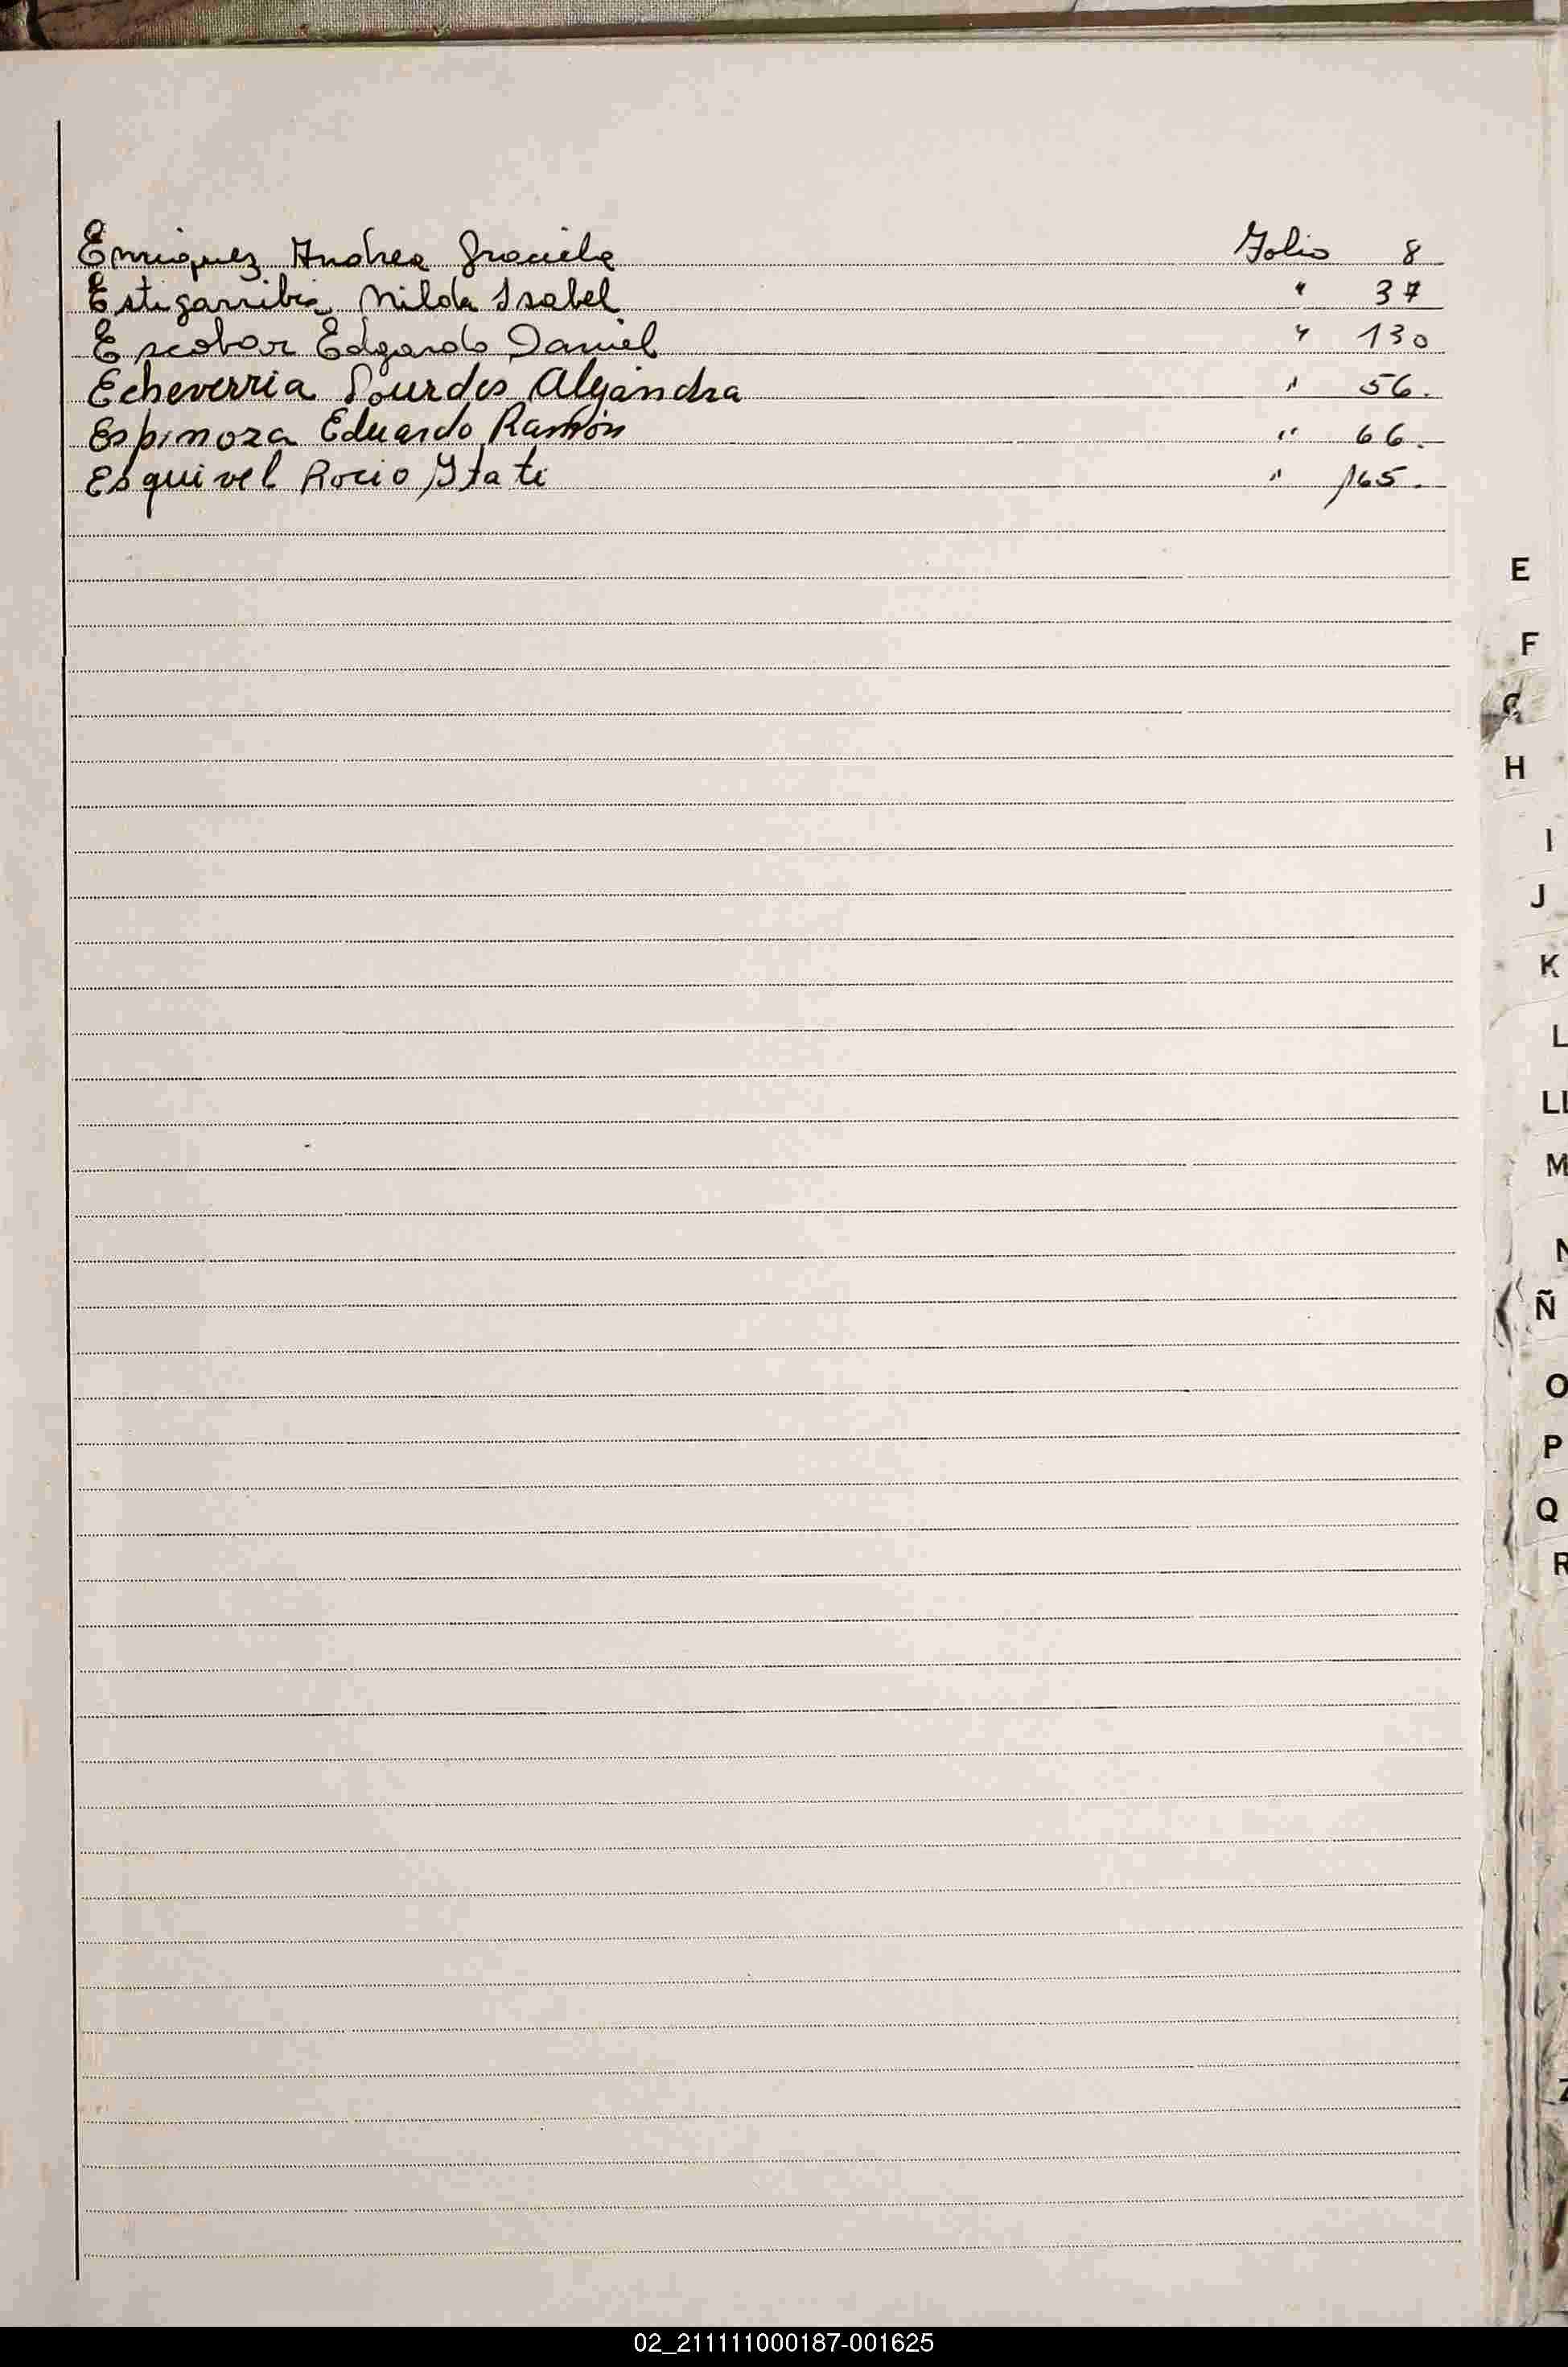 Enriquez Andrea Graciela Folio 8
Estigarribia Nilda Isabel " 37
Escobar Edgardo Daniel " 130
Echeverria Lourdes Alejandra " 56.
Espinoza Eduardo Ramón " 66.
Esquivel Rocio Itati " 165.
E
F
G
H
I
J
K
L
LL
M
N
Ñ
O
P
Q
R
Z
02_211111000187-001625